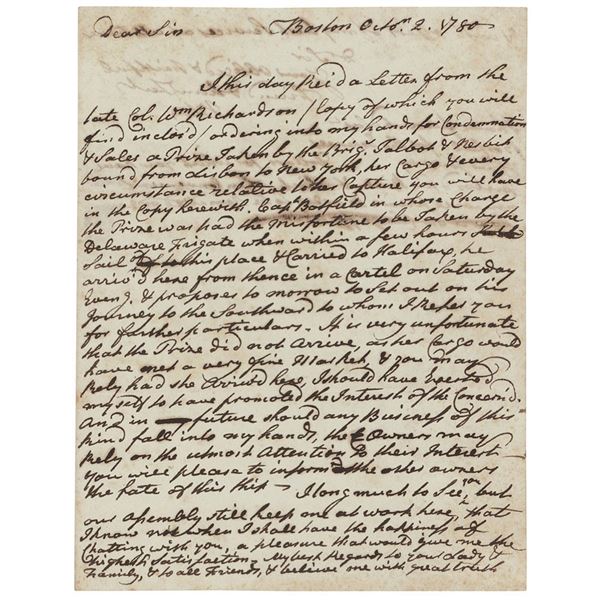 Dear Sir Boston Octor. 2. 1780
I this day Rec'd a Letter from the
late Col. Wm Richardson / Copy of which you will
find inclos'd / ordering into my hands for Condemnation
& Sales a Prize Taken by the Brig. Talbot &
bound from Lisbon to New York, her Cargo & every
circumstance relative to her Capture you will have
in the Copy herewith. Cap. Botfield in whose Charge
the Prize was had the Misfortune to be Taken by the
Delaware Frigate when within a few hours
Sail of this place & Carried to Halifax, he
arriv'd here from thence in a Cartel on Saturday
Eveng. & proposes to morrow to Set out on his
Journey to the Southward to whom I Refer you
for further particulars. It is very unfortunate
that the Prize did not Arrive, as her Cargo would
have met a very fine Market, & you may
Rely had she Arriv'd here, I should have Exerted
myself to have promoted the Interest of the Concern'd.
And in future should any Buisness of this
kind fall into my hands, the Owners may
Rely on the utmost Attention to their Interest —
You will please to inform the other owners
the fate of this Ship — I long much to See you, but
our Assembly still keep me at work here, that
I know not when I shall have the happiness of
Chatting with you, a pleasure that would give me the
highest Satisfaction. My best Regards to your Lady &
Family, & to all Friends, & believe me with great truth